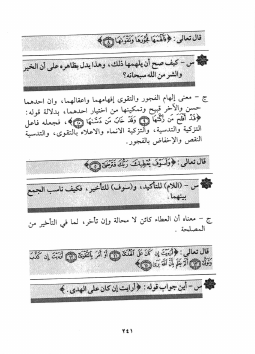 قال تعالى: ﴿فَأَلْهَمَهَا فُجُورَهَا وَتَقْوَاهَا﴾
س - كيف صح أن يلهمها ذلك، وهذا يدل بظاهره على أن الخير
والشر من الله سبحانه؟
ج - معنى إلهام الفجور والتقوى إفهامهما واعقالهما، وان احدهما
حسن والآخر قبيح وتمكينها من اختيار احدهما، بدلالة قوله:
﴿قَدْ أَفْلَحَ مَن زَكَّاهَا وَقَدْ خَابَ مَن دَسَّاهَا﴾، فجعله فاعل
التزكية والتدسية، والتزكية الانماء والاعلاء بالتقوى، والتدسية
النقص والإخفاض بالفجور.
قال تعالى: ﴿وَلَسَوْفَ يُعْطِيكَ رَبُّكَ فَتَرْضَى﴾
س - (اللام) للتأكيد، و(سوف) للتأخير، فكيف ناسب الجمع
بينهما.
ج - معناه أن العطاء كائن لا محالة وإن تأخر، لما في التأخير من
المصلحة.
قال تعالى: ﴿أَرَأَيْتَ إِن كَانَ عَلَى الْهُدَى أَوْ أَمَرَ بِالتَّقْوَى أَرَأَيْتَ إِن كَذَّبَ
وَتَوَلَّى أَلَمْ يَعْلَم بِأَنَّ اللَّهَ يَرَى﴾
س - أين جواب قوله: ﴿أرايت إن كان على الهدى.﴾
٢٤١